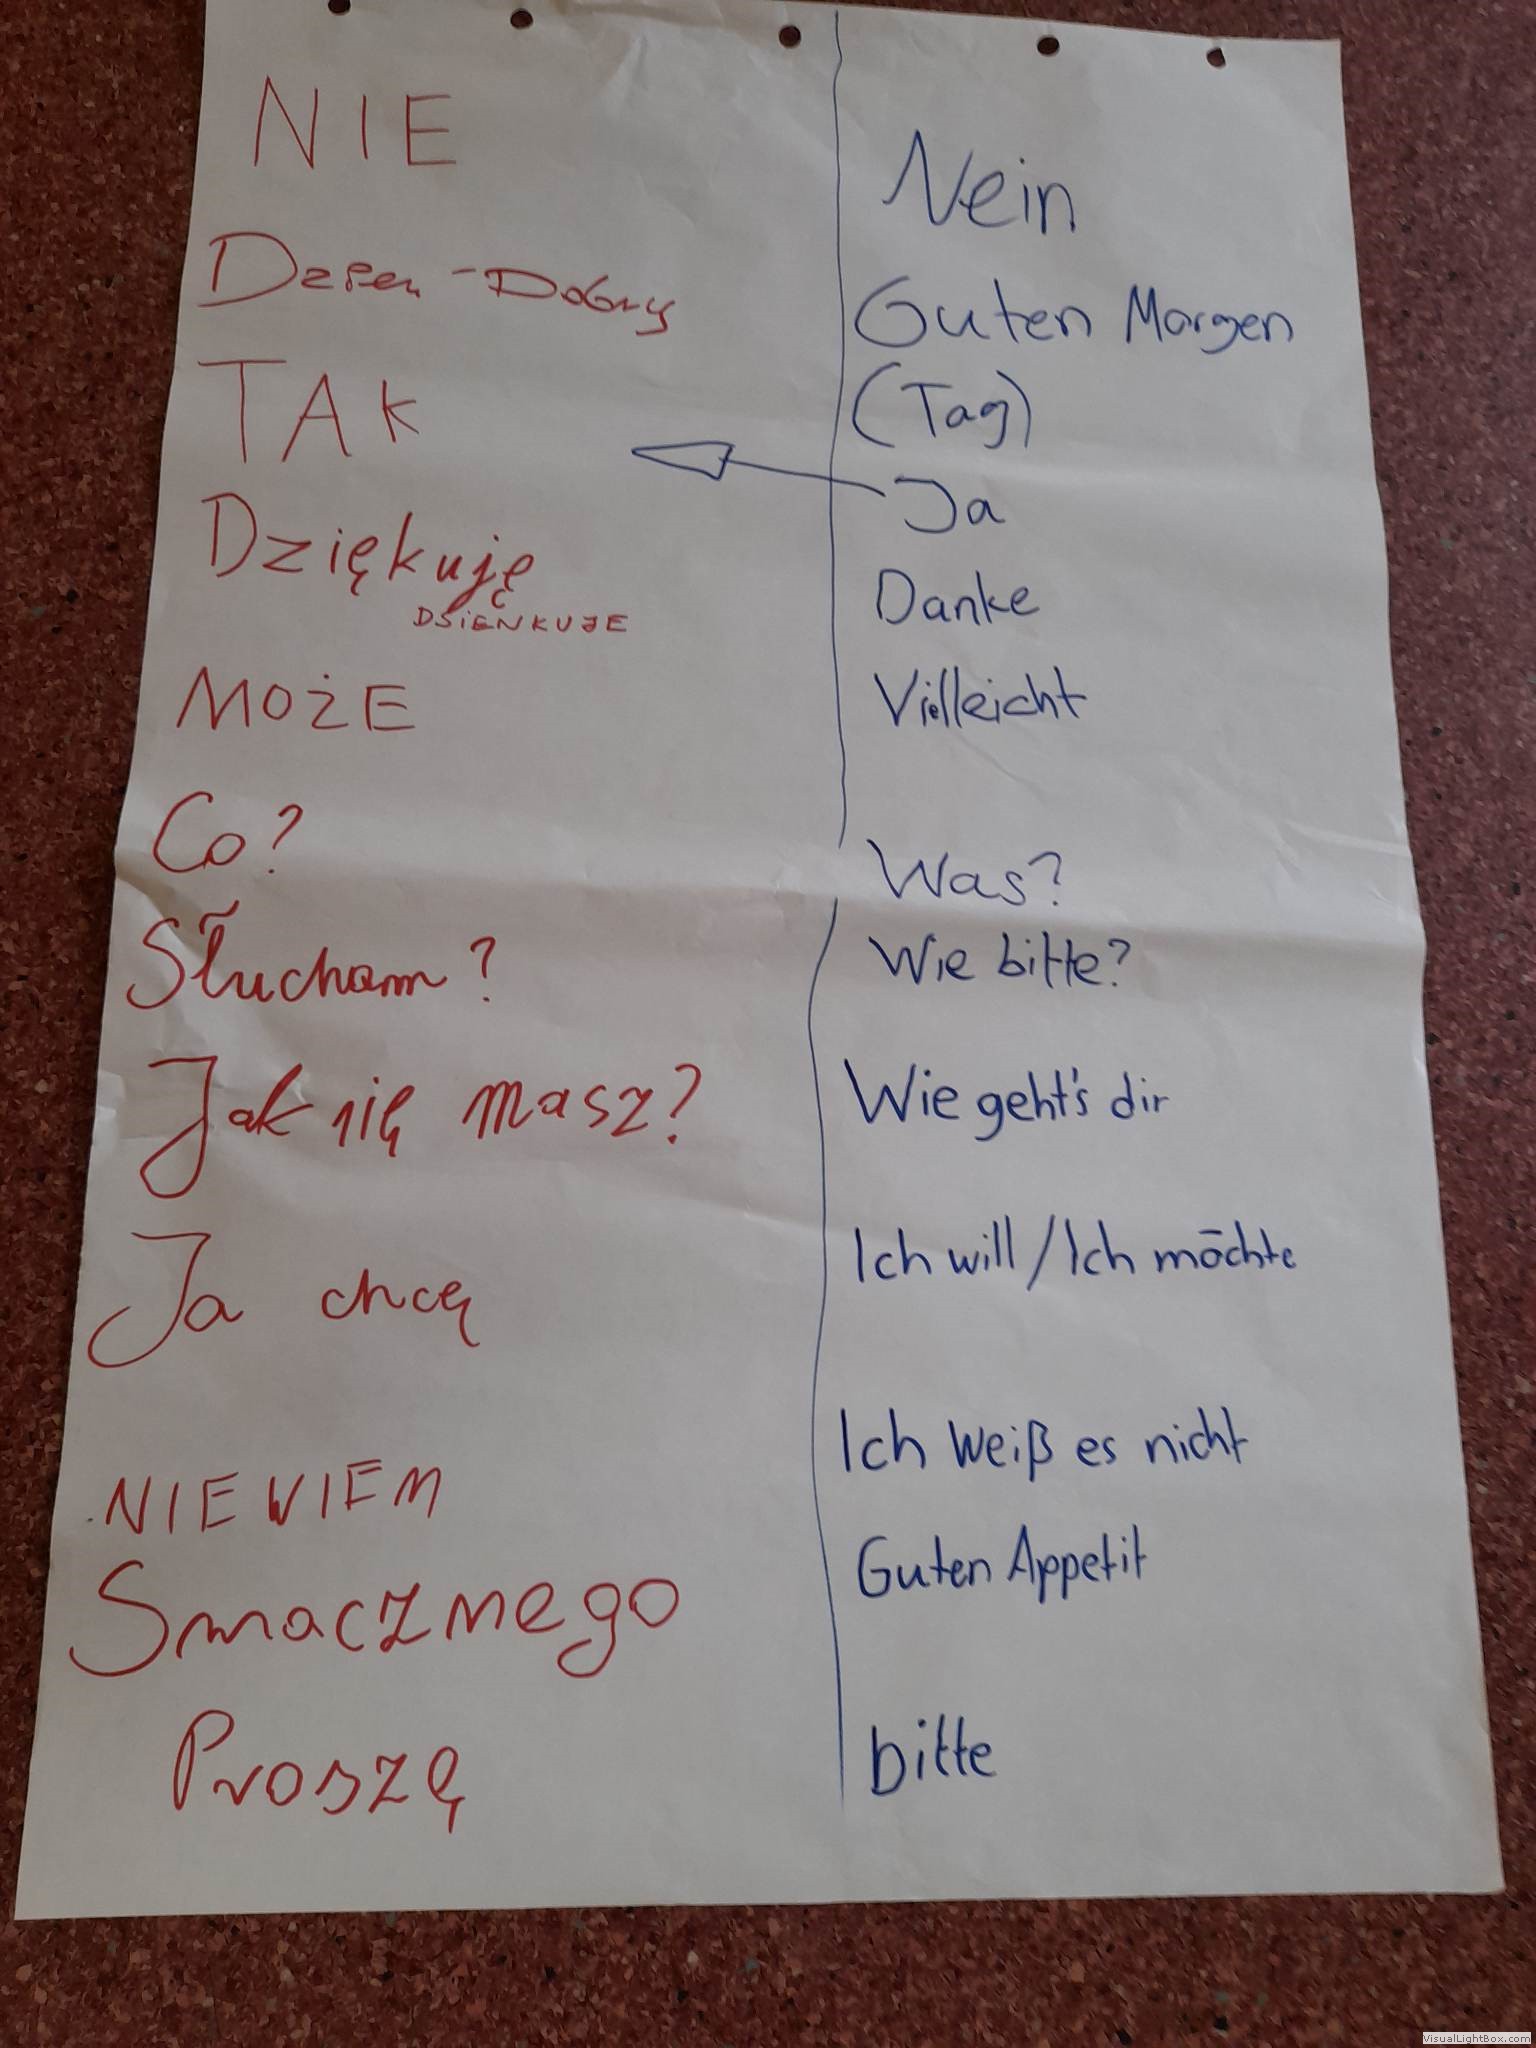 NIE
Nein
Dzien - Dobry
Guten Morgen
(Tag)
TAK
Ja
Dziękuję
DSIENKUJE
Danke
MOŻE
Vielleicht
Co?
Was?
Słucham?
Wie bitte?
Jak się masz?
Wie geht's dir
Ja chcę
Ich will / Ich möchte
NIE WIEM
Ich weiß es nicht
Smacznego
Guten Appetit
Proszę
bitte
VisualLightBox.com